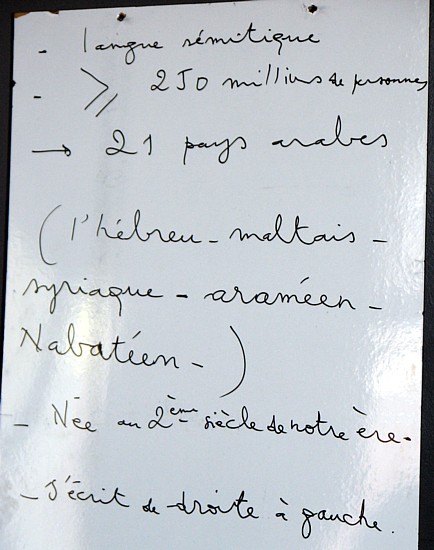 - langue sémitique
- ⩾ 250 millions de personnes
→ 21 pays arabes
(l'hébreu - maltais -
syriaque - araméen -
Nabatéen - )
- Née au 2ème siècle de notre ère.
- S'écrit de droite à gauche.